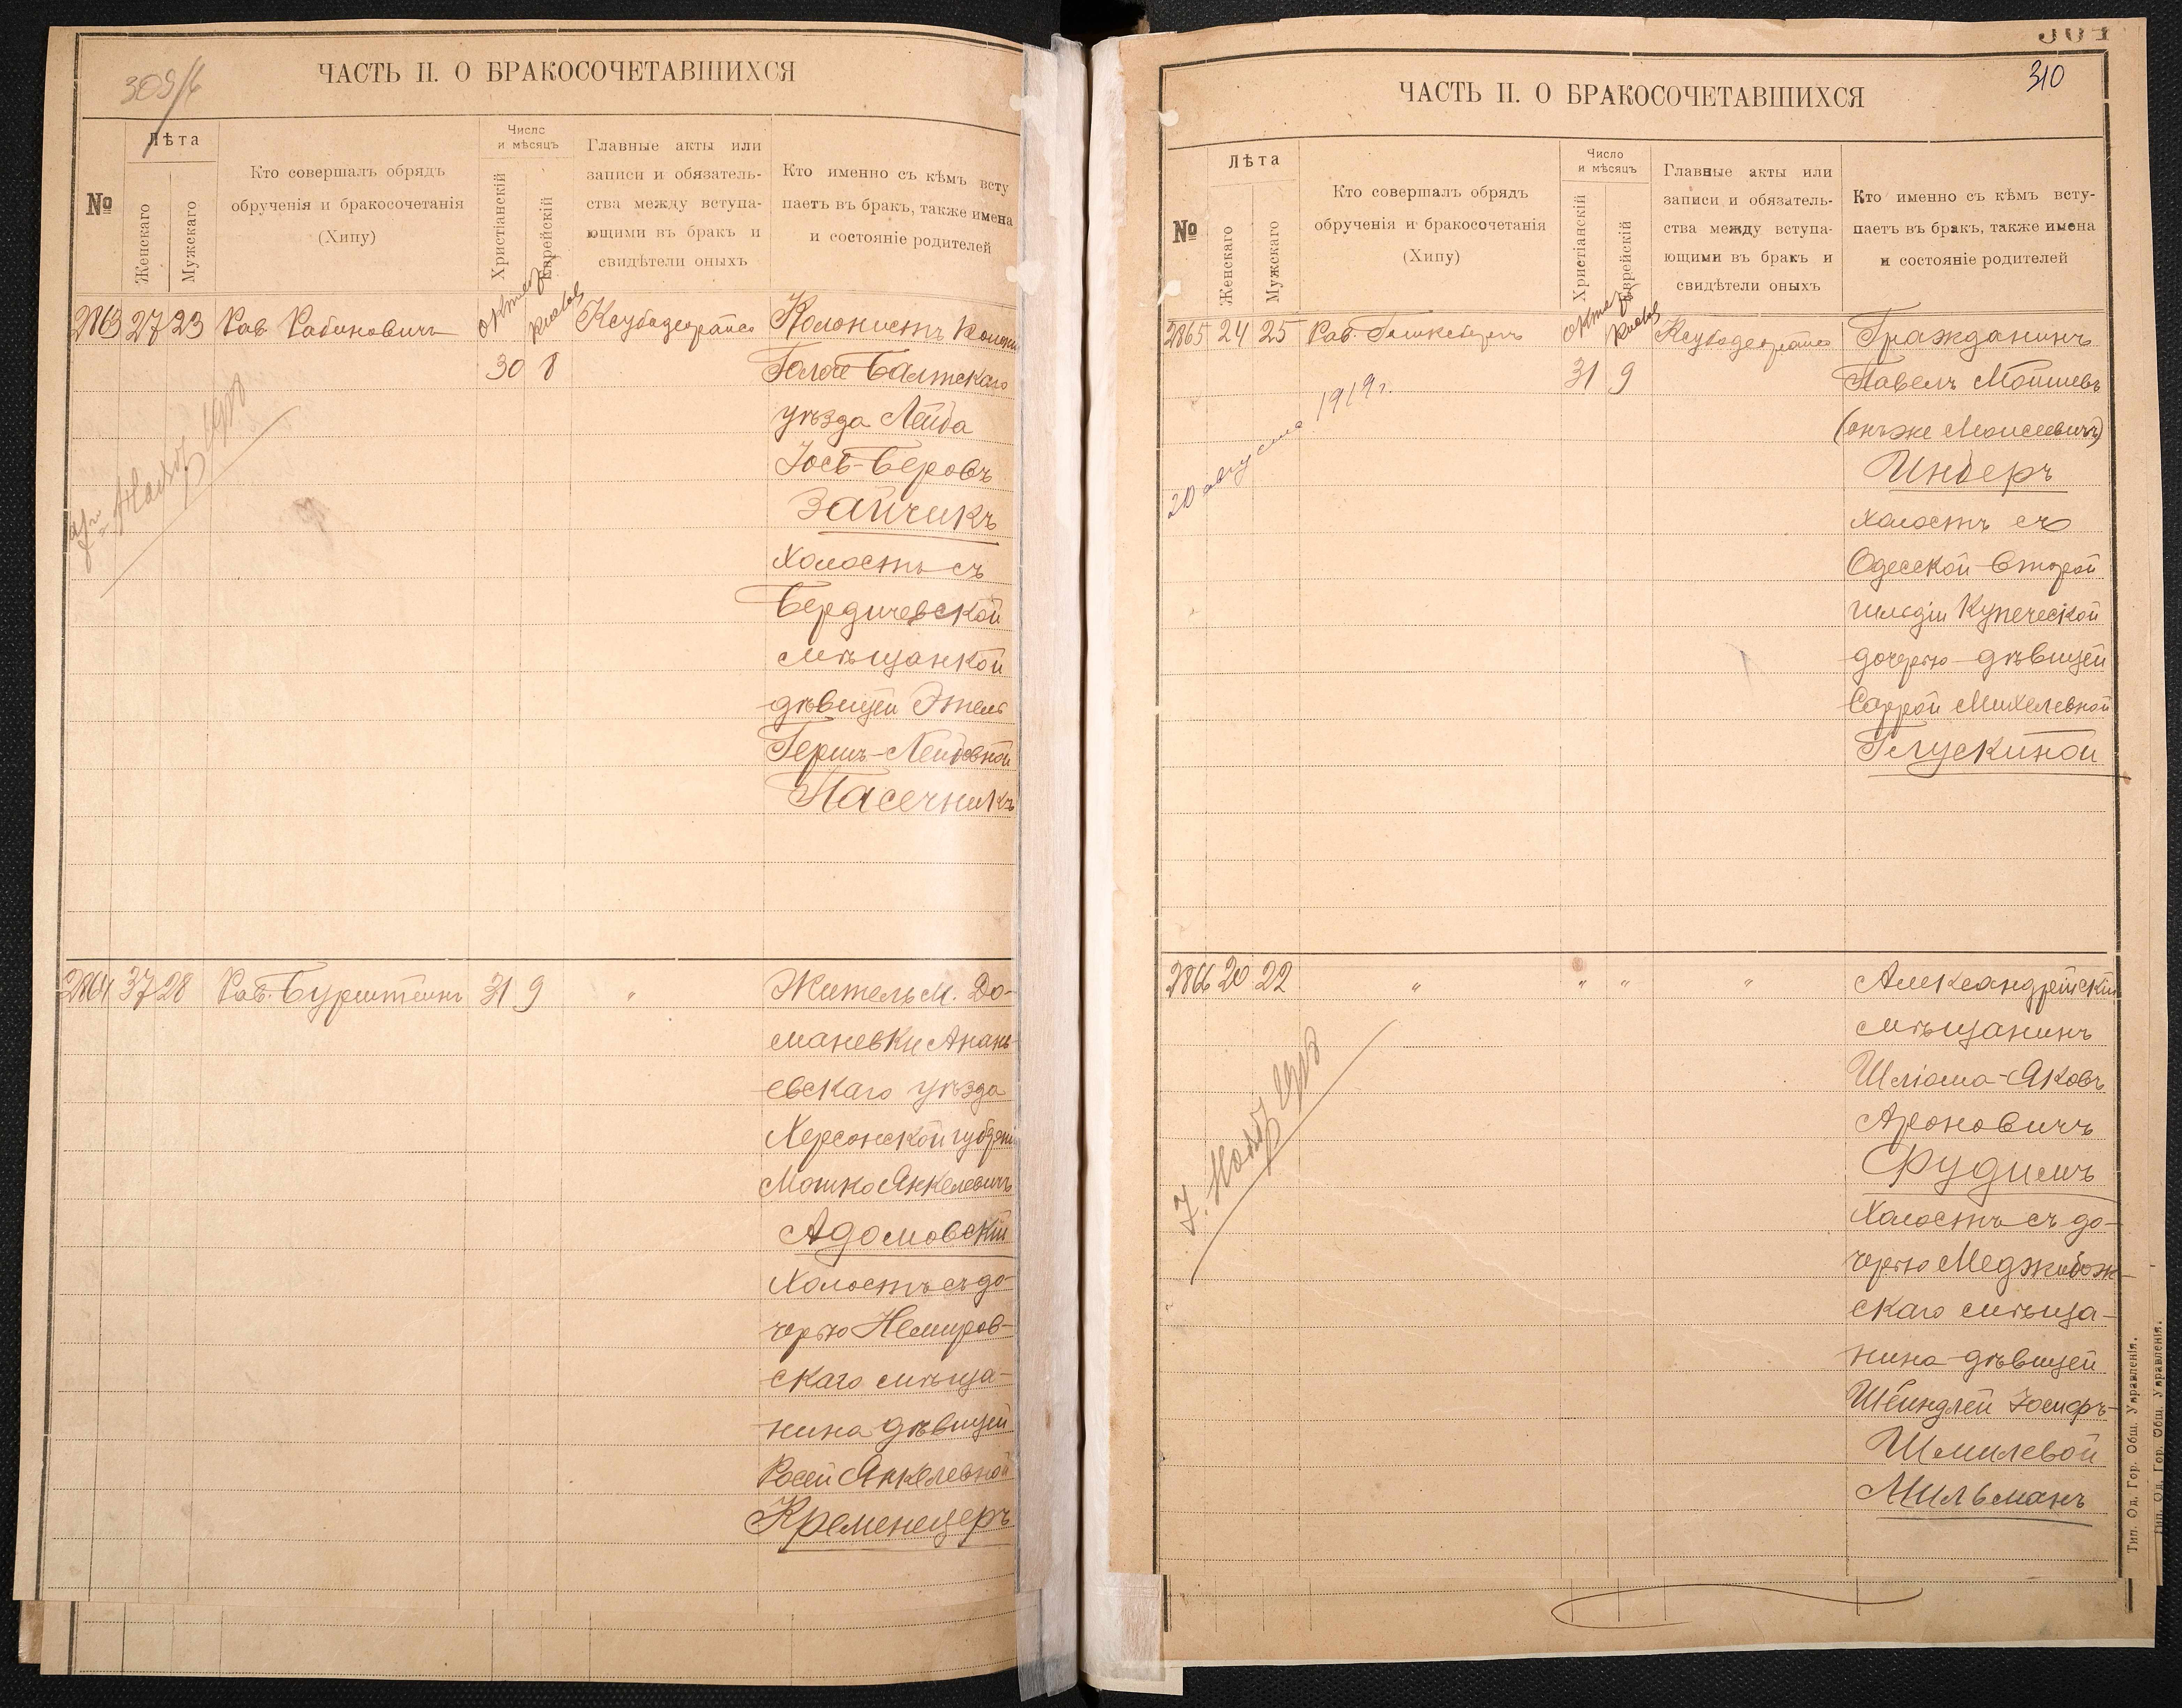 309/б
ЧАСТЬ II. О БРАКОСОЧЕТАВШИХСЯ
№
Лѣта
Женскаго
Мужскаго
Кто совершалъ обрядъ
обрученія и бракосочетанія
(Хипу)
Число
и мѣсяцъ
Христіанскій
Еврейскій
Главные акты или
записи и обязатель-
ства между вступа-
ющими въ бракъ и
свидѣтели оныхъ
Кто именно съ кѣмъ всту
паетъ въ бракъ, также имена
и состояніе родителей
2863 27 23 Рав Рабиновичъ
30 8
Колонистъ
Балтскаго
уѣзда Лейба
Іось-Беровъ
Зайчикъ
холостъ съ
Бердичевской
мѣщанкой
дѣвицей Этель
Гершъ-Лейбовной
Пасечникъ
2864 37 28 Рав. Бурштейнъ 31 9 "
Житель м. До-
маневки Анань-
евскаго уѣзда
Херсонской губерніи
Мошко Янкелевичъ
Адомовскій
холостъ съ до-
черью Немиров-
скаго мѣща-
нина дѣвицей
Росей Янкелевной
Кременецеръ
310
ЧАСТЬ II. О БРАКОСОЧЕТАВШИХСЯ
№
Лѣта
Женскаго
Мужскаго
Кто совершалъ обрядъ
обрученія и бракосочетанія
(Хипу)
Число
и мѣсяцъ
Христіанскій
Еврейскій
Главные акты или
записи и обязатель-
ства между вступа-
ющими въ бракъ и
свидѣтели оныхъ
Кто именно съ кѣмъ всту-
паетъ въ бракъ, также имена
и состояніе родителей
2865 24 25 Рав.
31 9
20 августа 1919 г.
Гражданинъ
Павелъ Мойшевъ
(онъ же Моисеевичъ)
Инберъ
холостъ съ
Одесской Второй
гильдіи Купеческой
дочерью дѣвицей
Саррой Михелевной
Глускиной
2866 20 22 " " " "
Александрійскій
мѣщанинъ
Шліома-Яковъ
Ароновичъ
Фудимъ
холостъ съ до-
черью Меджибож-
скаго мѣща-
нина дѣвицей
Шейндлей Іосифъ-
Шмилевой
Мильманъ
Тип. Од. Гор. Общ. Управленія.
Тип. Од. Гор. Общ. Управленія.